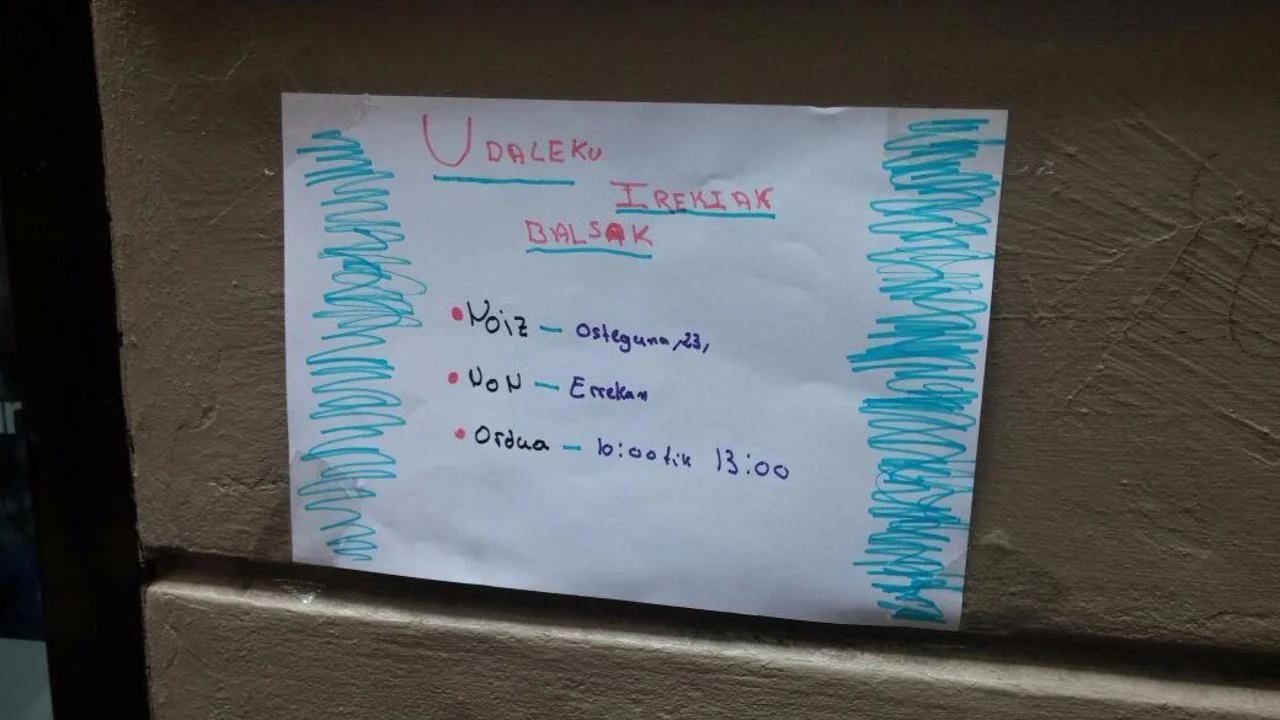 UDALEKU
IREKIAK
BALSAK
• NOIZ – Osteguna, 23,
• NON – Errekan
• Ordua – 10:00tik 13:00